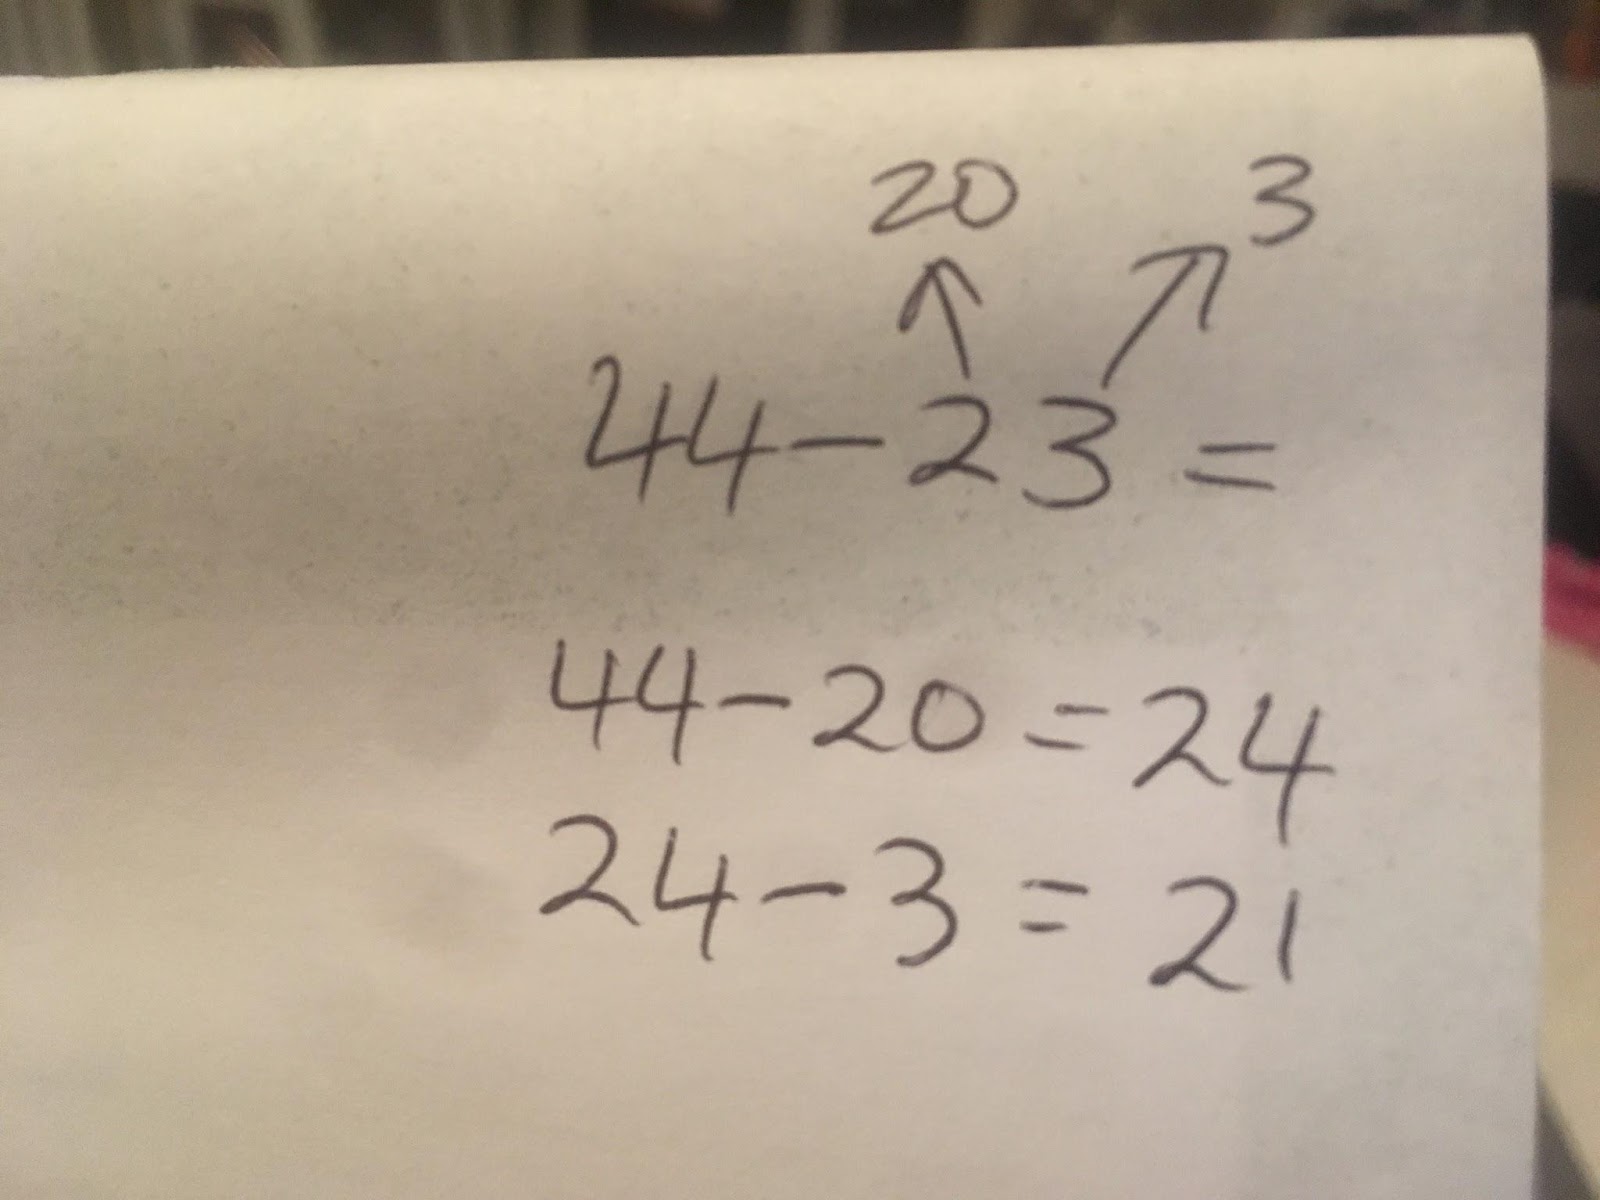 20 3
44-23=
44-20=24
24-3=21